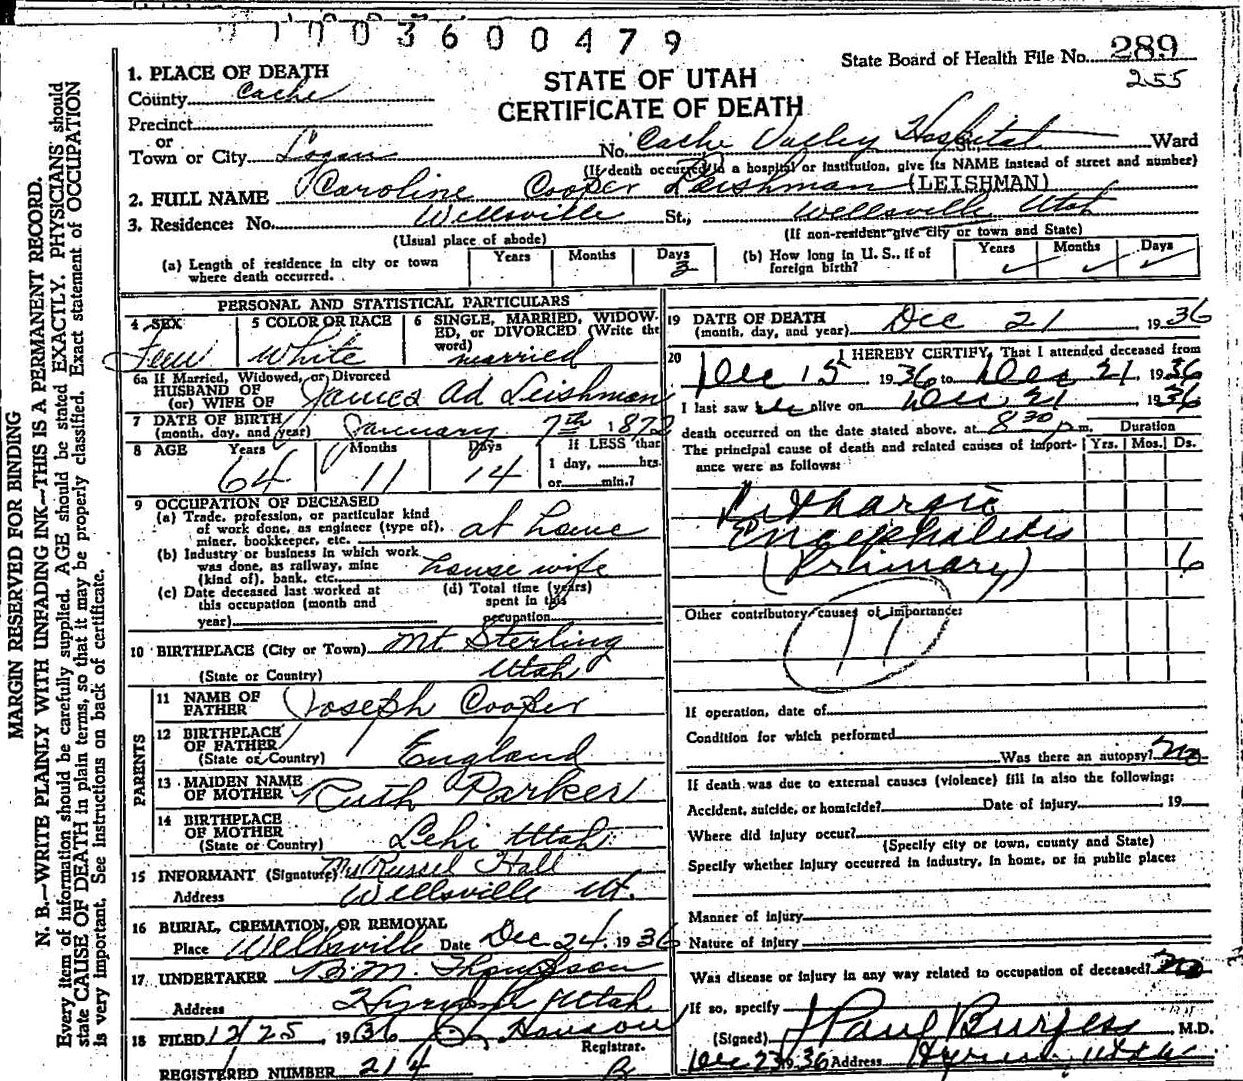 3600479
State Board of Health File No. 289
255
STATE OF UTAH
CERTIFICATE OF DEATH
1. PLACE OF DEATH
County Cache
Precinct
or
Town or City Logan No. Cache Valley Hospital St., Ward
(If death occurred in a hospital or institution, give its NAME instead of street and number)
2. FULL NAME Caroline Cooper Leishman (LEISHMAN)
3. Residence: No. Wellsville St., Wellsville Utah
(Usual place of abode) (If non-resident give city or town and State)
(a) Length of residence in city or town where death occurred. Years Months Days 3
(b) How long in U. S., if of foreign birth? Years ✓ Months ✓ Days ✓
PERSONAL AND STATISTICAL PARTICULARS
4 SEX Fem
5 COLOR OR RACE White
6 SINGLE, MARRIED, WIDOWED, or DIVORCED (Write the word) married
6a If Married, Widowed, or Divorced
HUSBAND OF
(or) WIFE OF James Ad Leishman
7 DATE OF BIRTH
(month, day, and year) January 7th 1872
8 AGE Years 64 Months 11 Days 14 If LESS than
1 day, hrs.
or min.?
9 OCCUPATION OF DECEASED
(a) Trade, profession, or particular kind
of work done, as engineer (type of),
miner, bookkeeper, etc. at home
(b) Industry or business in which work
was done, as railway, mine
(kind of), bank, etc. house wife
(c) Date deceased last worked at
this occupation (month and
year)
(d) Total time (years)
spent in this
occupation
10 BIRTHPLACE (City or Town) Mt Sterling
(State or Country) Utah
PARENTS
11 NAME OF
FATHER Joseph Cooper
12 BIRTHPLACE
OF FATHER
(State or Country) England
13 MAIDEN NAME
OF MOTHER Ruth Parker
14 BIRTHPLACE
OF MOTHER
(State or Country) Lehi Utah
15 INFORMANT (Signature) Russel Hall
Address Wellsville Ut.
16 BURIAL, CREMATION, OR REMOVAL
Place Wellsville Date Dec 24, 1936
17 UNDERTAKER B.M. Thompson
Address Hyrum Utah
18 FILED 12/25 1936
Registrar.
REGISTERED NUMBER 214
19 DATE OF DEATH
(month, day, and year) Dec 21, 1936
20 I HEREBY CERTIFY, That I attended deceased from
Dec 15 1936 to Dec 21 1936
I last saw her alive on Dec 21 1936
death occurred on the date stated above, at 8 30 p.m.
The principal cause of death and related causes of importance were as follows:
Duration
Yrs. Mos. Ds.
Lethargic
Encephalitis
(Primary) 6
Other contributory causes of importance:
17
If operation, date of
Condition for which performed
Was there an autopsy? no
If death was due to external causes (violence) fill in also the following:
Accident, suicide, or homicide? Date of injury 19
Where did injury occur?
(Specify city or town, county and State)
Specify whether injury occurred in industry, in home, or in public place:
Manner of injury
Nature of injury
Was disease or injury in any way related to occupation of deceased? no
If so, specify
(Signed) J Paul Burgess M.D.
Dec 23 1936 Address Hyrum, Utah
MARGIN RESERVED FOR BINDING
N. B.—WRITE PLAINLY WITH UNFADING INK—THIS IS A PERMANENT RECORD.
Every item of information should be carefully supplied. AGE should be stated EXACTLY. PHYSICIANS should
state CAUSE OF DEATH in plain terms, so that it may be properly classified. Exact statement of OCCUPATION
is very important. See instructions on back of certificate.